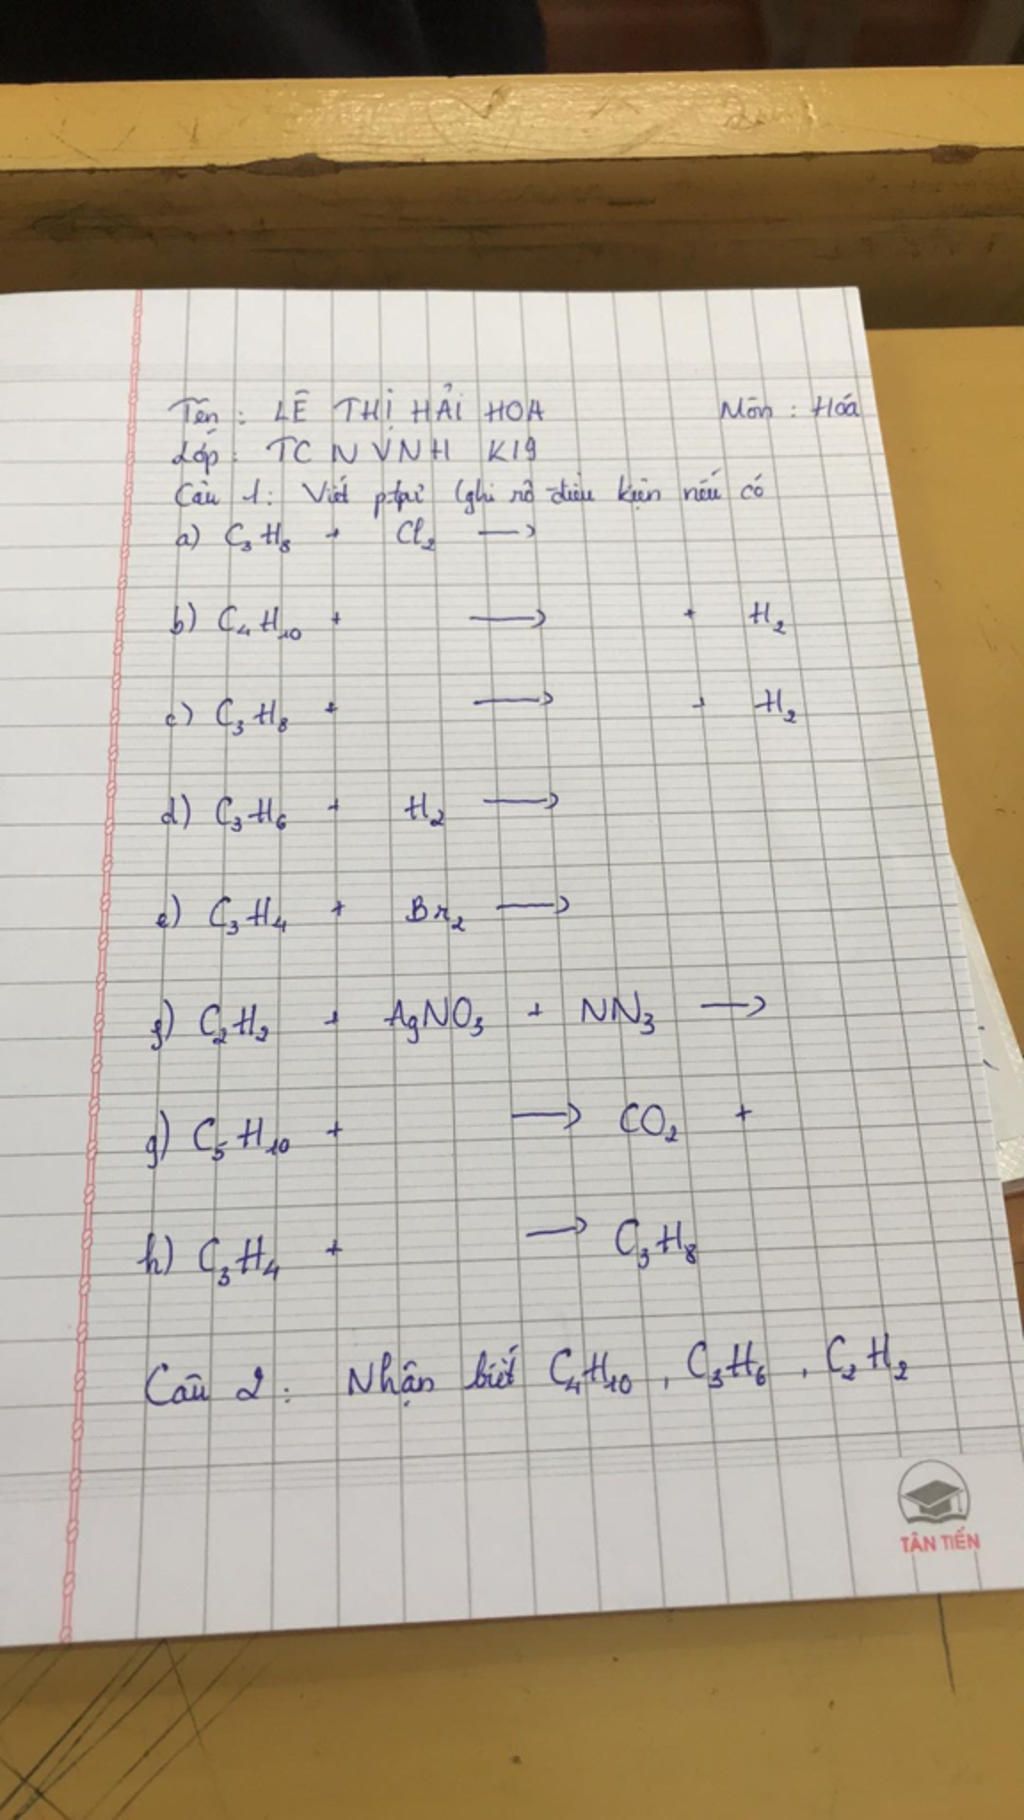 Tên : LÊ THỊ HẢI HOA Môn : Hóa
Lớp : TC N VNH K19
Câu 1 : Viết ptpứ (ghi rõ điều kiện nếu có
a) C₃H₈ + Cl₂ →
b) C₄H₁₀ + → + H₂
c) C₃H₈ + → + H₂
d) C₃H₆ + H₂ →
e) C₃H₄ + Br₂ →
f) C₂H₂ + AgNO₃ + NN₃ →
g) C₅H₁₀ + → CO₂ +
h) C₃H₄ + → C₃H₈
Câu 2 : Nhận biết C₄H₁₀ , C₃H₆ , C₂H₂
TÂN TIẾN